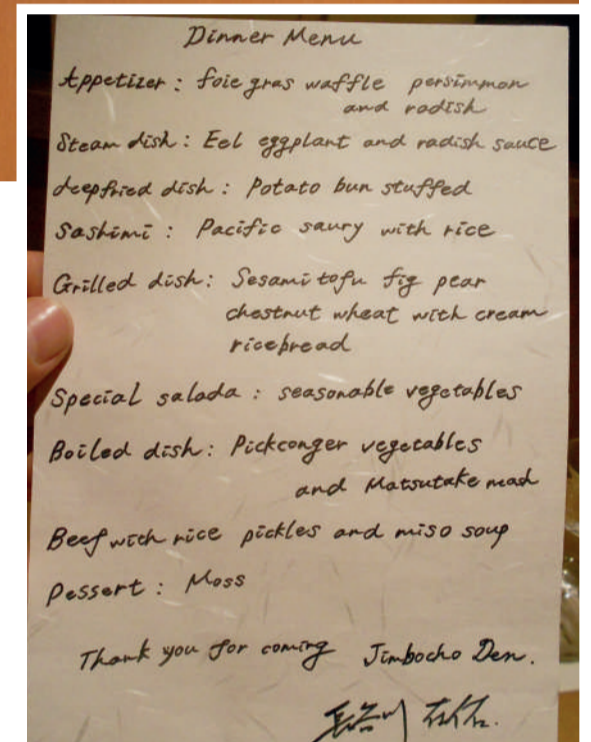 Dinner Menu
Appetizer : foie gras waffle persimmon
and radish
Steam dish : Eel eggplant and radish sauce
deepfried dish : Potato bun stuffed
Sashimi : Pacific saury with rice
Grilled dish : Sesami tofu fig pear
chestnut wheat with cream
ricebread
Special salada : seasonable vegetables
Boiled dish : Pickconger vegetables
and Matsutake mash
Beef with rice pickles and miso soup
Dessert : Moss
Thank you for coming Jimbocho Den.